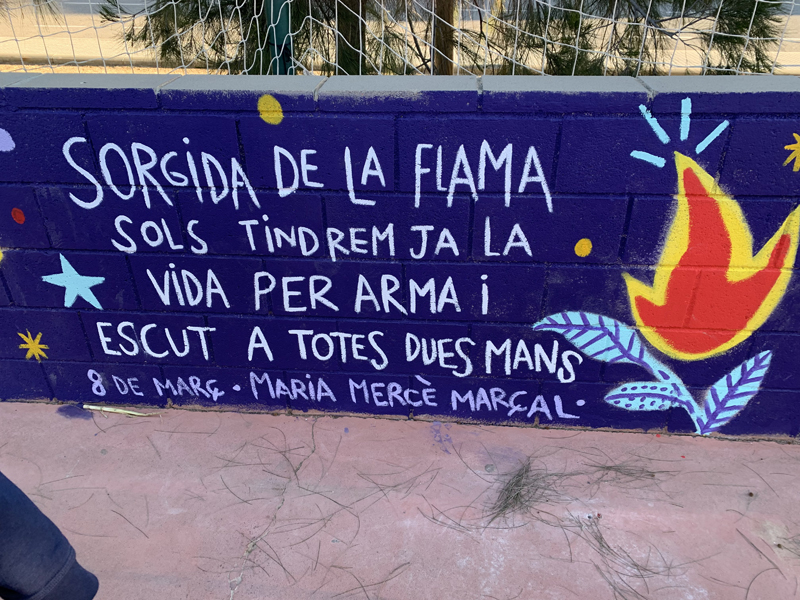 SORGIDA DE LA FLAMA
SOLS TINDREM JA LA
VIDA PER ARMA i
ESCUT A TOTES DUES MANS
8 DE MARÇ · MARIA MERCÈ MARÇAL·